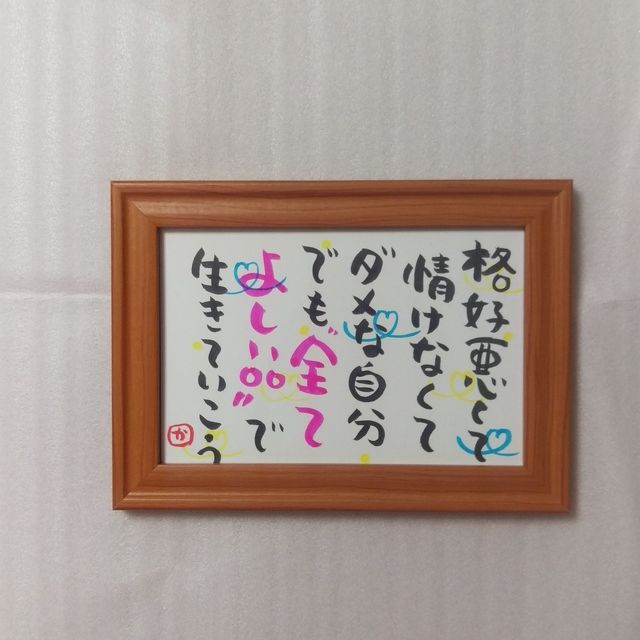 格好悪くて
情けなくて
ダメな自分
でも"全て
よし!!"で
生きていこう
か